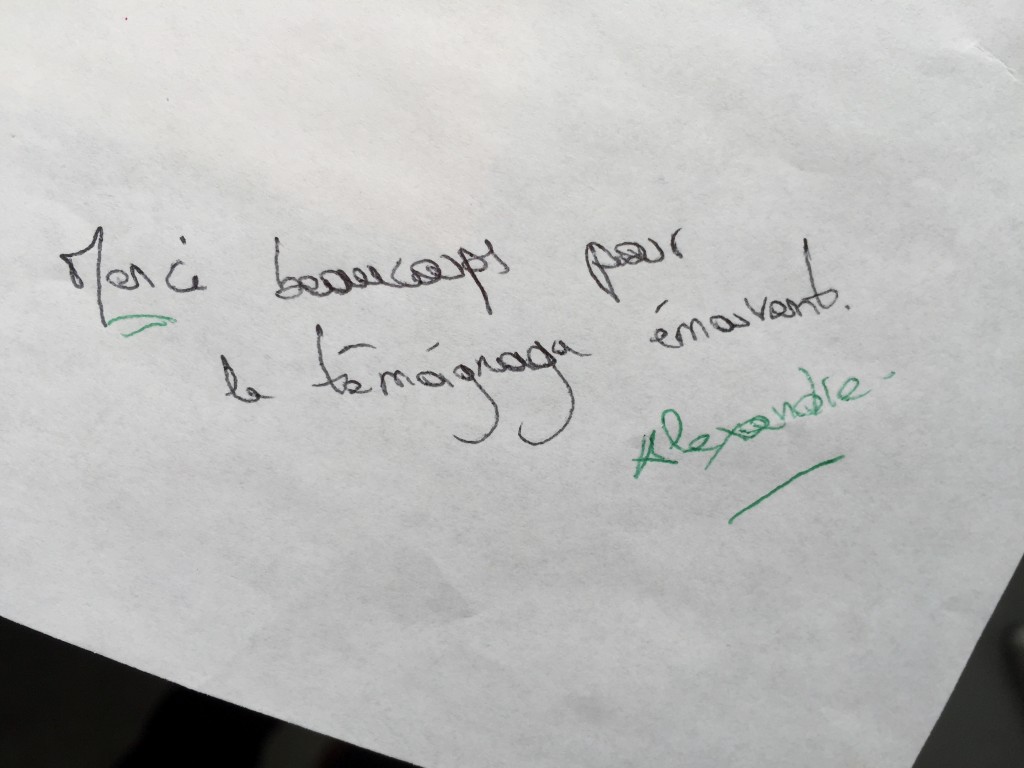 Merci beaucoup pour
le témoignage émouvant.
Alexandre